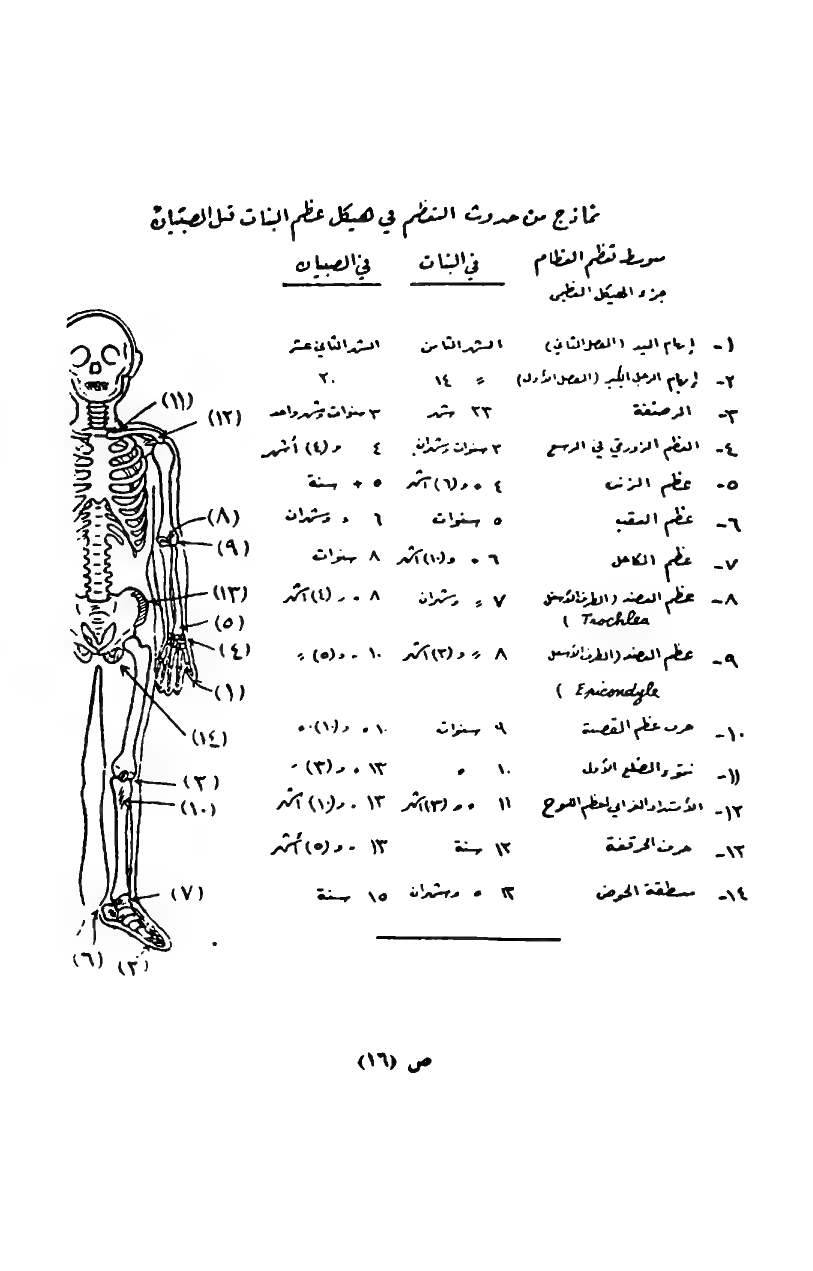 نماذج من حدوث التعظم في هيكل عظم البنات قبل الصبيان
متوسط تعظم العظام في البنات في الصبيان
جزء الهيكل العظمي
١- إبهام اليد (المفصل الثاني) الشهر الثامن الشهر الثاني عشر
٢- إبهام الرجل الكبير (المفصل الأول) ١٤ = ٢٠
٣- الرصنفة ٢٣ شهر ٣ سنوات وشهر واحد
٤- العظم الزورقي في الرسغ ٣ سنوات وشهران ٤ و(٤) أشهر
٥- عظم الزند ٤ ٥ و(٦) أشهر ٥ + سنة
٦- عظم العقب ٥ سنوات ٦ وشهران
٧- عظم الكاحل ٦ ٥ و(١٠) أشهر ٨ سنوات
٨- عظم العضد (الطرف الأسفل ٧ = وشهران ٨ و(٤) أشهر
( Trochlea
٩- عظم العضد (الطرف الأسفل ٨ = و(٣) أشهر ١٠ - و(٥) =
( Ericondyle
١٠- حرف عظم القصبة ٩ سنوات ١٠ ٥ و(١٠)
١١- نتوء الضلع الأول ١٠ ٥ ١٣ ٥ و(٣) -
١٢- الأمتداد الغرابي لعظم اللوح ١١ ٥ و(٣) أشهر ١٣ - و(١٠) أشهر
١٣- حرف الحرقفة ١٢ سنة ١٣ - و(٥) أشهر
١٤- منطقة الحوض ١٣ ٥ وشهران ١٥ سنة
(١١)
(١٢)
(٨)
(٩)
(١٣)
(٥)
(٤)
(١)
(١٤)
(٣)
(١٠)
(٧)
(٦) (٢)
ص (١٦)